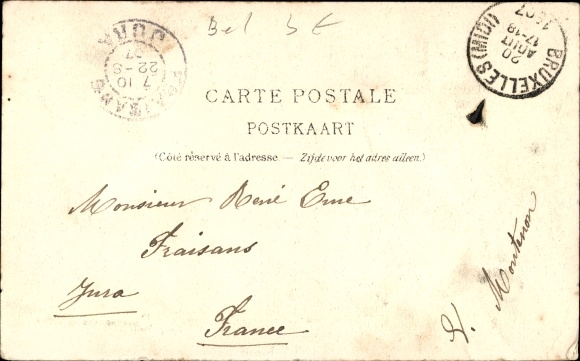 Bel 5 €
FRAISANS JURA
7 10
22-8
07
BRUXELLES (MIDI)
20
AOUT
17-18
1907
CARTE POSTALE
POSTKAART
(Côté réservé à l'adresse. — Zijde voor het adres alleen.)
Monsieur René Eme
Fraisans
Jura
France
L. Montenon